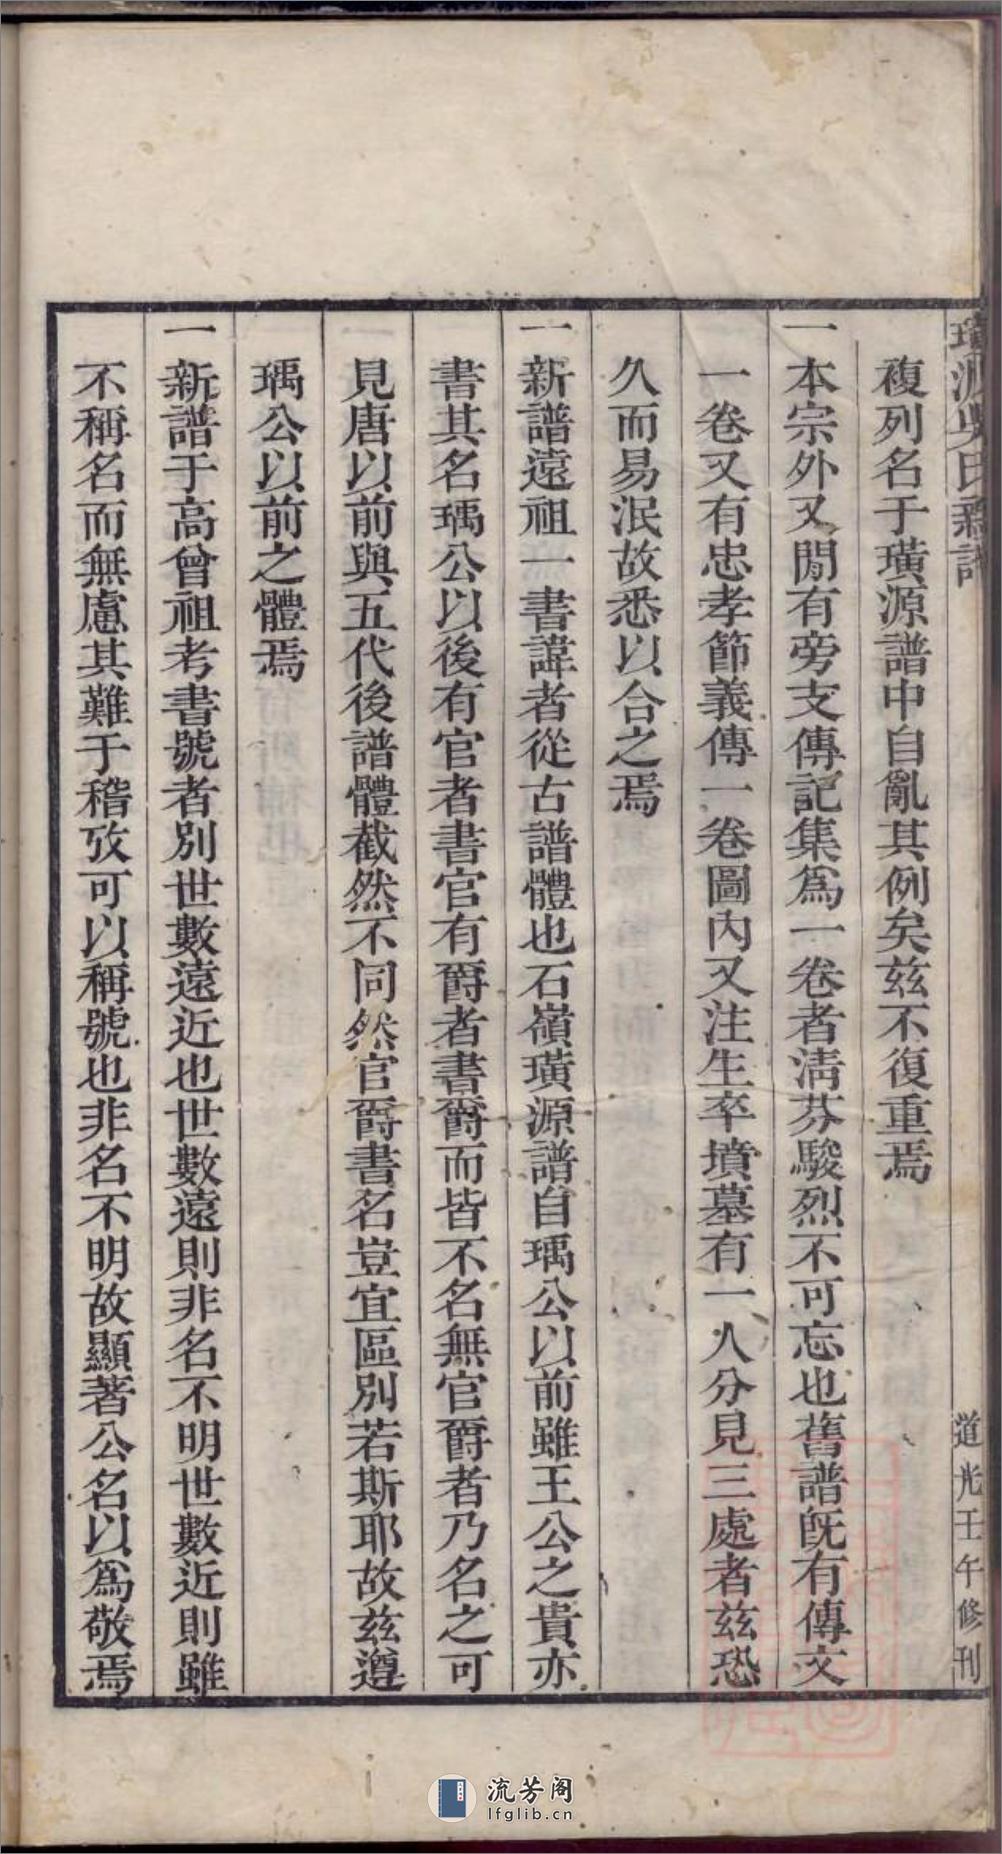 璜源吳氏新譜
道光壬午修刊
複列名于璜源譜中自亂其例矣茲不復重焉
一本宗外又間有旁支傳記集爲一卷者淸芬駿烈不可忘也舊譜旣有傳文
一卷又有忠孝節義傳一卷圖內又注生卒墳墓有一人分見三處者茲恐
久而易泯故悉以合之焉
一新譜遠祖一書諱者從古譜體也石嶺璜源譜自瑀公以前雖王公之貴亦
書其名瑀公以後有官者書官有爵者書爵而皆不名無官爵者乃名之可
見唐以前與五代後譜體截然不同然官爵書名豈宜區別若斯耶故茲遵
瑀公以前之體焉
一新譜于高曾祖考書號者別世數遠近也世數遠則非名不明世數近則雖
不稱名而無慮其難于稽攷可以稱號也非名不明故顯著公名以爲敬焉
流芳阁
lfglib.cn